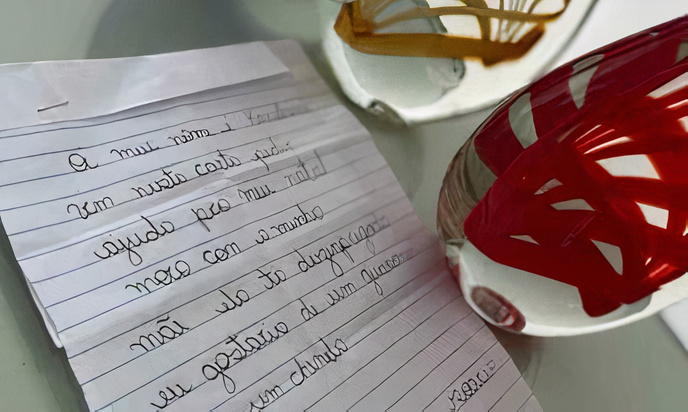 O meu nóm é
vem nesta carta pedi
ajuda pro meu natal
moro con a minha
mãi ela ta dezempregada
eu gostaria di um
um chinelo